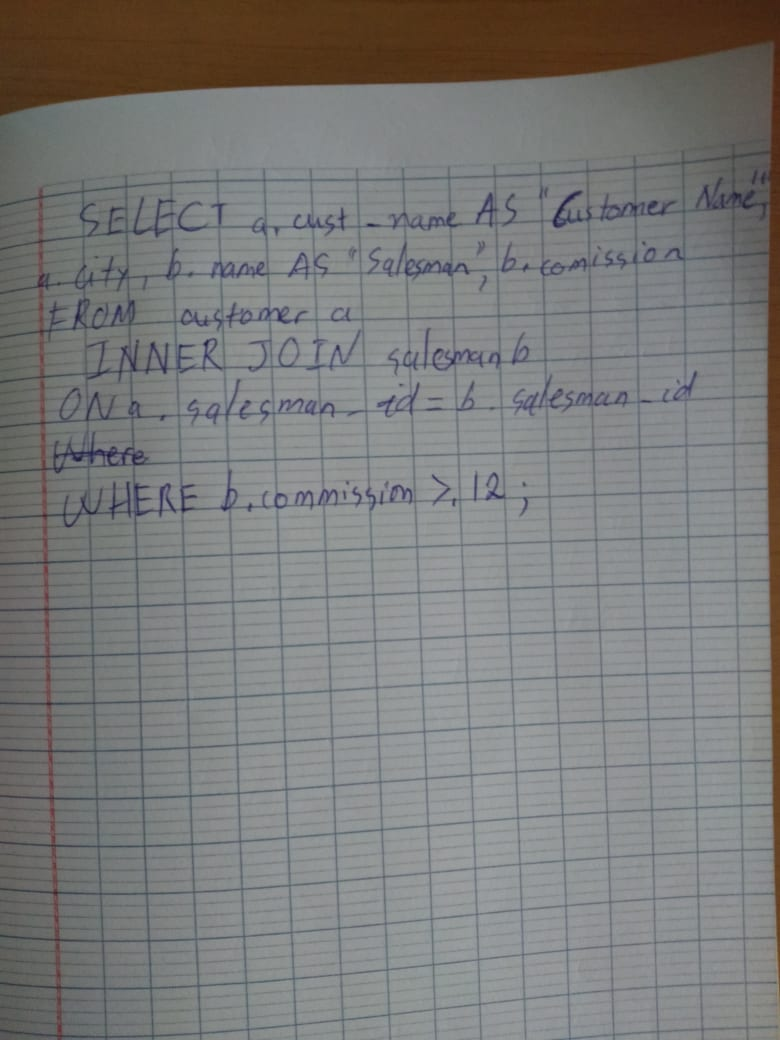 SELECT a.cust_name AS "Customer Name",
a.city, b.name AS "Salesman", b.comission
FROM customer a
INNER JOIN salesman b
ON a.salesman_id = b.salesman_id
Where
WHERE b.commission >.12;